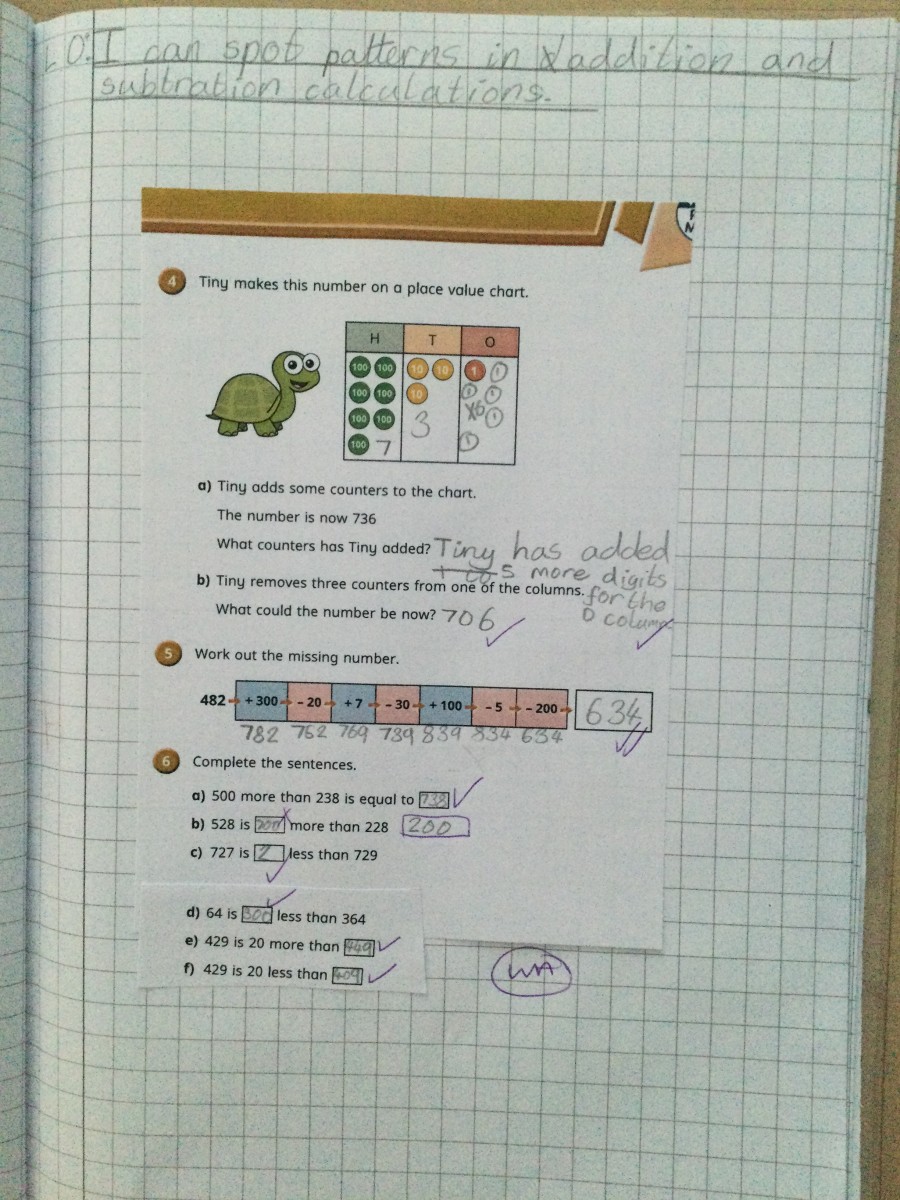 L.O: I can spot patterns in addition and
subtration calculations.
4 Tiny makes this number on a place value chart.
H T O
100 100 10 10 1 1
100 100 10 1 1
100 100 3 X6 1
100 7 1
a) Tiny adds some counters to the chart.
The number is now 736
What counters has Tiny added? Tiny has added
5 more digits
b) Tiny removes three counters from one of the columns. for the
What could the number be now? 706 O column
5 Work out the missing number.
482 + 300 - 20 + 7 - 30 + 100 - 5 - 200 634
782 762 769 739 839 834 634
6 Complete the sentences.
a) 500 more than 238 is equal to 738
b) 528 is more than 228 200
c) 727 is 2 less than 729
d) 64 is 300 less than 364
e) 429 is 20 more than 449
f) 429 is 20 less than 409
WA